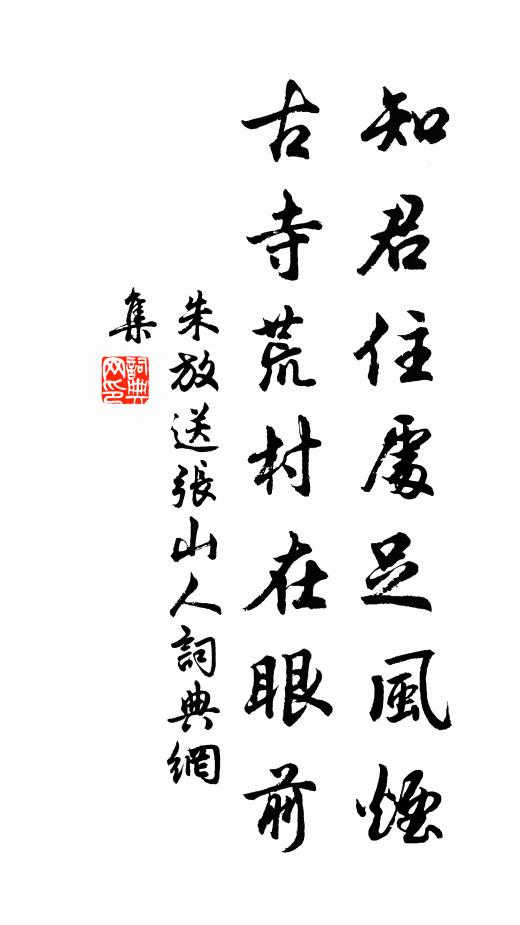 知君住處足風煙
古寺荒村在眼前
朱放送張山人詞典網
集
詞典網印